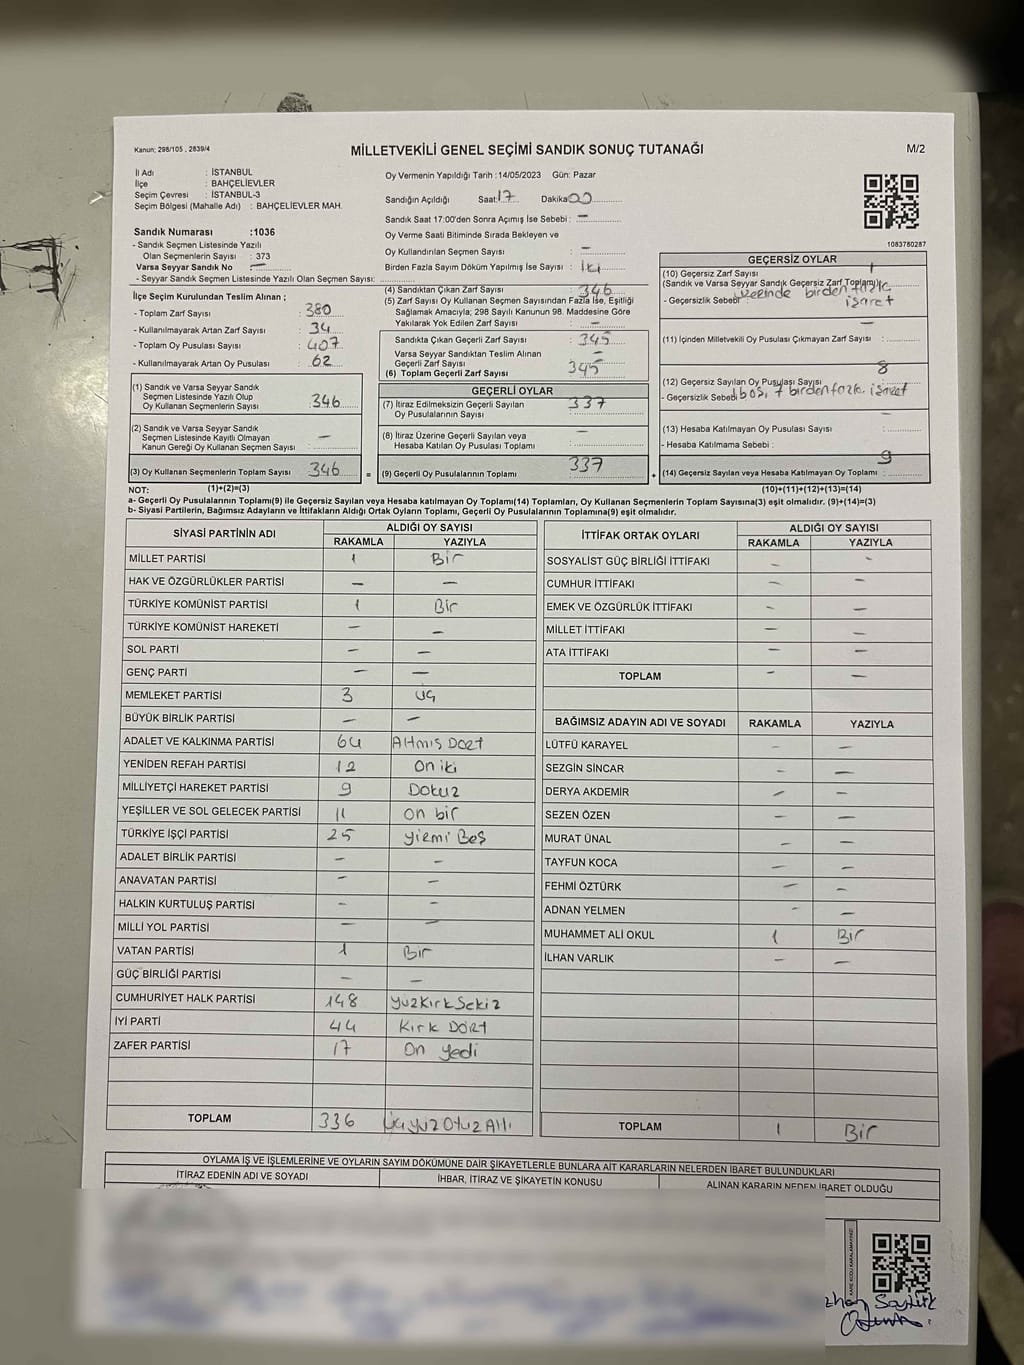 Kanun; 298/105 , 2839/4
MİLLETVEKİLİ GENEL SEÇİMİ SANDIK SONUÇ TUTANAĞI
M/2
İl Adı : İSTANBUL
İlçe : BAHÇELİEVLER
Seçim Çevresi : İSTANBUL-3
Seçim Bölgesi (Mahalle Adı) : BAHÇELİEVLER MAH.
Sandık Numarası :1036
- Sandık Seçmen Listesinde Yazılı
Olan Seçmenlerin Sayısı : 373
Varsa Seyyar Sandık No : —
- Seyyar Sandık Seçmen Listesinde Yazılı Olan Seçmen Sayısı:
Oy Vermenin Yapıldığı Tarih : 14/05/2023 Gün: Pazar
Sandığın Açıldığı Saat:17 Dakika:00
Sandık Saat 17:00'den Sonra Açımış İse Sebebi : —
Oy Verme Saati Bitiminde Sırada Bekleyen ve
Oy Kullandırılan Seçmen Sayısı : —
Birden Fazla Sayım Döküm Yapılmış İse Sayısı : İki
1083780287
İlçe Seçim Kurulundan Teslim Alınan ;
- Toplam Zarf Sayısı : 380
- Kullanılmayarak Artan Zarf Sayısı : 34
- Toplam Oy Pusulası Sayısı : 407
- Kullanılmayarak Artan Oy Pusulası : 62
(1) Sandık ve Varsa Seyyar Sandık
Seçmen Listesinde Yazılı Olup
Oy Kullanan Seçmenlerin Sayısı : 346
(2) Sandık ve Varsa Seyyar Sandık
Seçmen Listesinde Kayıtlı Olmayan
Kanun Gereği Oy Kullanan Seçmen Sayısı : —
(3) Oy Kullanan Seçmenlerin Toplam Sayısı : 346 =
(4) Sandıktan Çıkan Zarf Sayısı : 346
(5) Zarf Sayısı Oy Kullanan Seçmen Sayısından Fazla İse, Eşitliği
Sağlamak Amacıyla; 298 Sayılı Kanunun 98. Maddesine Göre
Yakılarak Yok Edilen Zarf Sayısı : —
Sandıkta Çıkan Geçerli Zarf Sayısı : 345
Varsa Seyyar Sandıktan Teslim Alınan
Geçerli Zarf Sayısı : —
(6) Toplam Geçerli Zarf Sayısı : 345
GEÇERLİ OYLAR
(7) İtiraz Edilmeksizin Geçerli Sayılan
Oy Pusulalarının Sayısı : 337
(8) İtiraz Üzerine Geçerli Sayılan veya
Hesaba Katılan Oy Pusulaları Toplamı : —
(9) Geçerli Oy Pusulalarının Toplamı : 337 +
GEÇERSİZ OYLAR
(10) Geçersiz Zarf Sayısı 1
(Sandık ve Varsa Seyyar Sandık Geçersiz Zarf Toplamı):
- Geçersizlik Sebebi : üzerinde birden fazla
işaret
(11) İçinden Milletvekili Oy Pusulası Çıkmayan Zarf Sayısı : —
(12) Geçersiz Sayılan Oy Pusulası Sayısı : 8
- Geçersizlik Sebebi : 1 boş, 7 birden fazla işaret
(13) Hesaba Katılmayan Oy Pusulası Sayısı : —
- Hesaba Katılmama Sebebi :
(14) Geçersiz Sayılan veya Hesaba Katılmayan Oy Toplamı : 9
NOT: (1)+(2)=(3) (10)+(11)+(12)+(13)=(14)
a- Geçerli Oy Pusulalarının Toplamı(9) ile Geçersiz Sayılan veya Hesaba katılmayan Oy Toplamı(14) Toplamları, Oy Kullanan Seçmenlerin Toplam Sayısına(3) eşit olmalıdır. (9)+(14)=(3)
b- Siyasi Partilerin, Bağımsız Adayların ve İttifakların Aldığı Ortak Oyların Toplamı, Geçerli Oy Pusulalarının Toplamına(9) eşit olmalıdır.
SİYASİ PARTİNİN ADI ALDIĞI OY SAYISI
RAKAMLA YAZIYLA
MİLLET PARTİSİ 1 Bir
HAK VE ÖZGÜRLÜKLER PARTİSİ — —
TÜRKİYE KOMÜNİST PARTİSİ 1 Bir
TÜRKİYE KOMÜNİST HAREKETİ — —
SOL PARTİ — —
GENÇ PARTİ — —
MEMLEKET PARTİSİ 3 üç
BÜYÜK BİRLİK PARTİSİ — —
ADALET VE KALKINMA PARTİSİ 64 Altmış Dört
YENİDEN REFAH PARTİSİ 12 on iki
MİLLİYETÇİ HAREKET PARTİSİ 9 Dokuz
YEŞİLLER VE SOL GELECEK PARTİSİ 11 on bir
TÜRKİYE İŞÇİ PARTİSİ 25 yirmi Beş
ADALET BİRLİK PARTİSİ — —
ANAVATAN PARTİSİ — —
HALKIN KURTULUŞ PARTİSİ — —
MİLLİ YOL PARTİSİ — —
VATAN PARTİSİ 1 Bir
GÜÇ BİRLİĞİ PARTİSİ — —
CUMHURİYET HALK PARTİSİ 148 yüzkırksekiz
İYİ PARTİ 44 Kırk Dört
ZAFER PARTİSİ 17 On yedi
TOPLAM 336 üçyüzOtuzAltı
İTTİFAK ORTAK OYLARI ALDIĞI OY SAYISI
RAKAMLA YAZIYLA
SOSYALİST GÜÇ BİRLİĞİ İTTİFAKI — —
CUMHUR İTTİFAKI — —
EMEK VE ÖZGÜRLÜK İTTİFAKI — —
MİLLET İTTİFAKI — —
ATA İTTİFAKI — —
TOPLAM — —
BAĞIMSIZ ADAYIN ADI VE SOYADI RAKAMLA YAZIYLA
LÜTFÜ KARAYEL — —
SEZGİN SİNCAR — —
DERYA AKDEMİR — —
SEZEN ÖZEN — —
MURAT ÜNAL — —
TAYFUN KOCA — —
FEHMİ ÖZTÜRK — —
ADNAN YELMEN — —
MUHAMMET ALİ OKUL 1 Bir
İLHAN VARLIK — —
TOPLAM 1 Bir
OYLAMA İŞ VE İŞLEMLERİNE VE OYLARIN SAYIM DÖKÜMÜNE DAİR ŞİKAYETLERLE BUNLARA AİT KARARLARIN NELERDEN İBARET BULUNDUKLARI
İTİRAZ EDENİN ADI VE SOYADI İHBAR, İTİRAZ VE ŞİKAYETİN KONUSU ALINAN KARARIN NEDEN İBARET OLDUĞU
KARE KODU KARALAMAYINIZ!